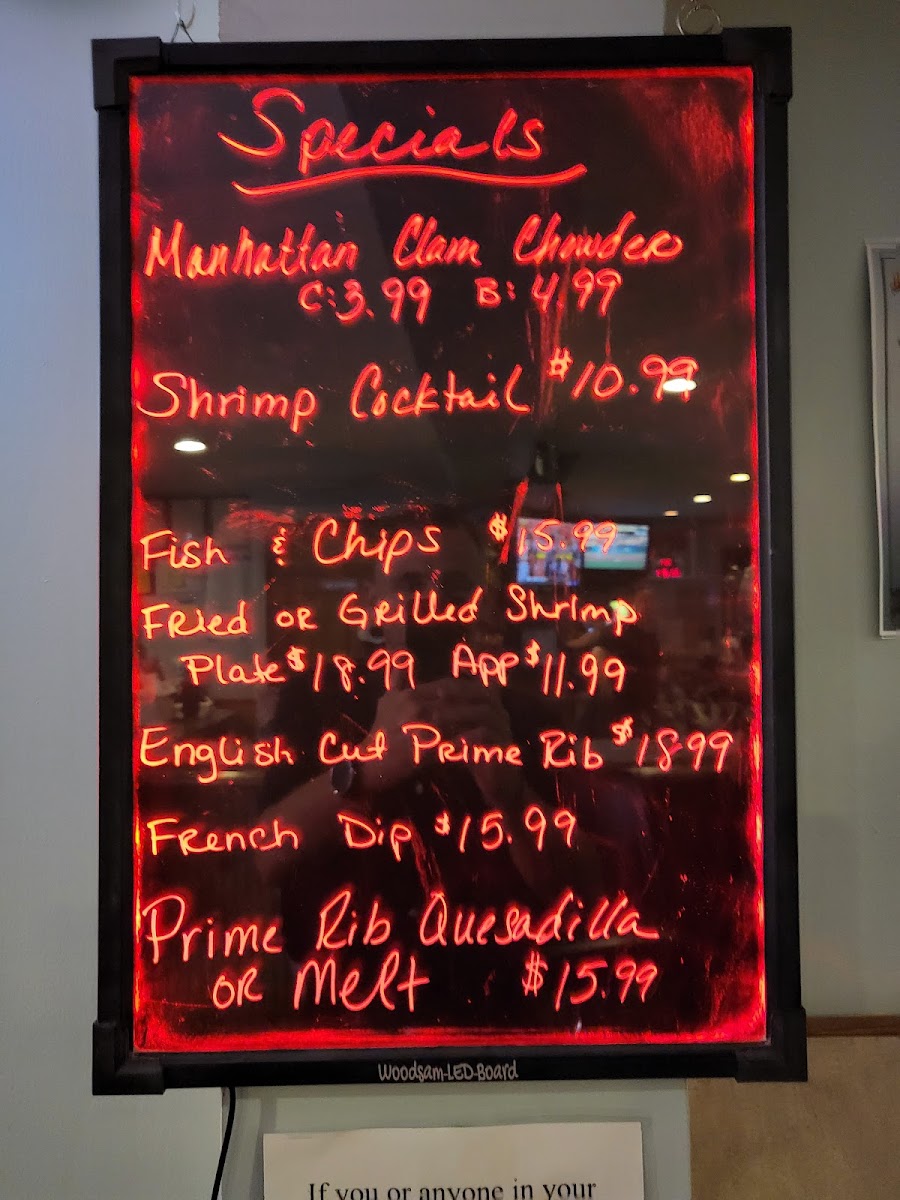 Specials
Manhattan Clam Chowder
C: 3.99 B: 4.99
Shrimp Cocktail $10.99
Fish & Chips $15.99
Fried or Grilled Shrimp
Plate $18.99 App $11.99
English Cut Prime Rib $1899
French Dip $15.99
Prime Rib Quesadilla
or Melt $15.99
Woodsam-LED-Board
If you or anyone in your